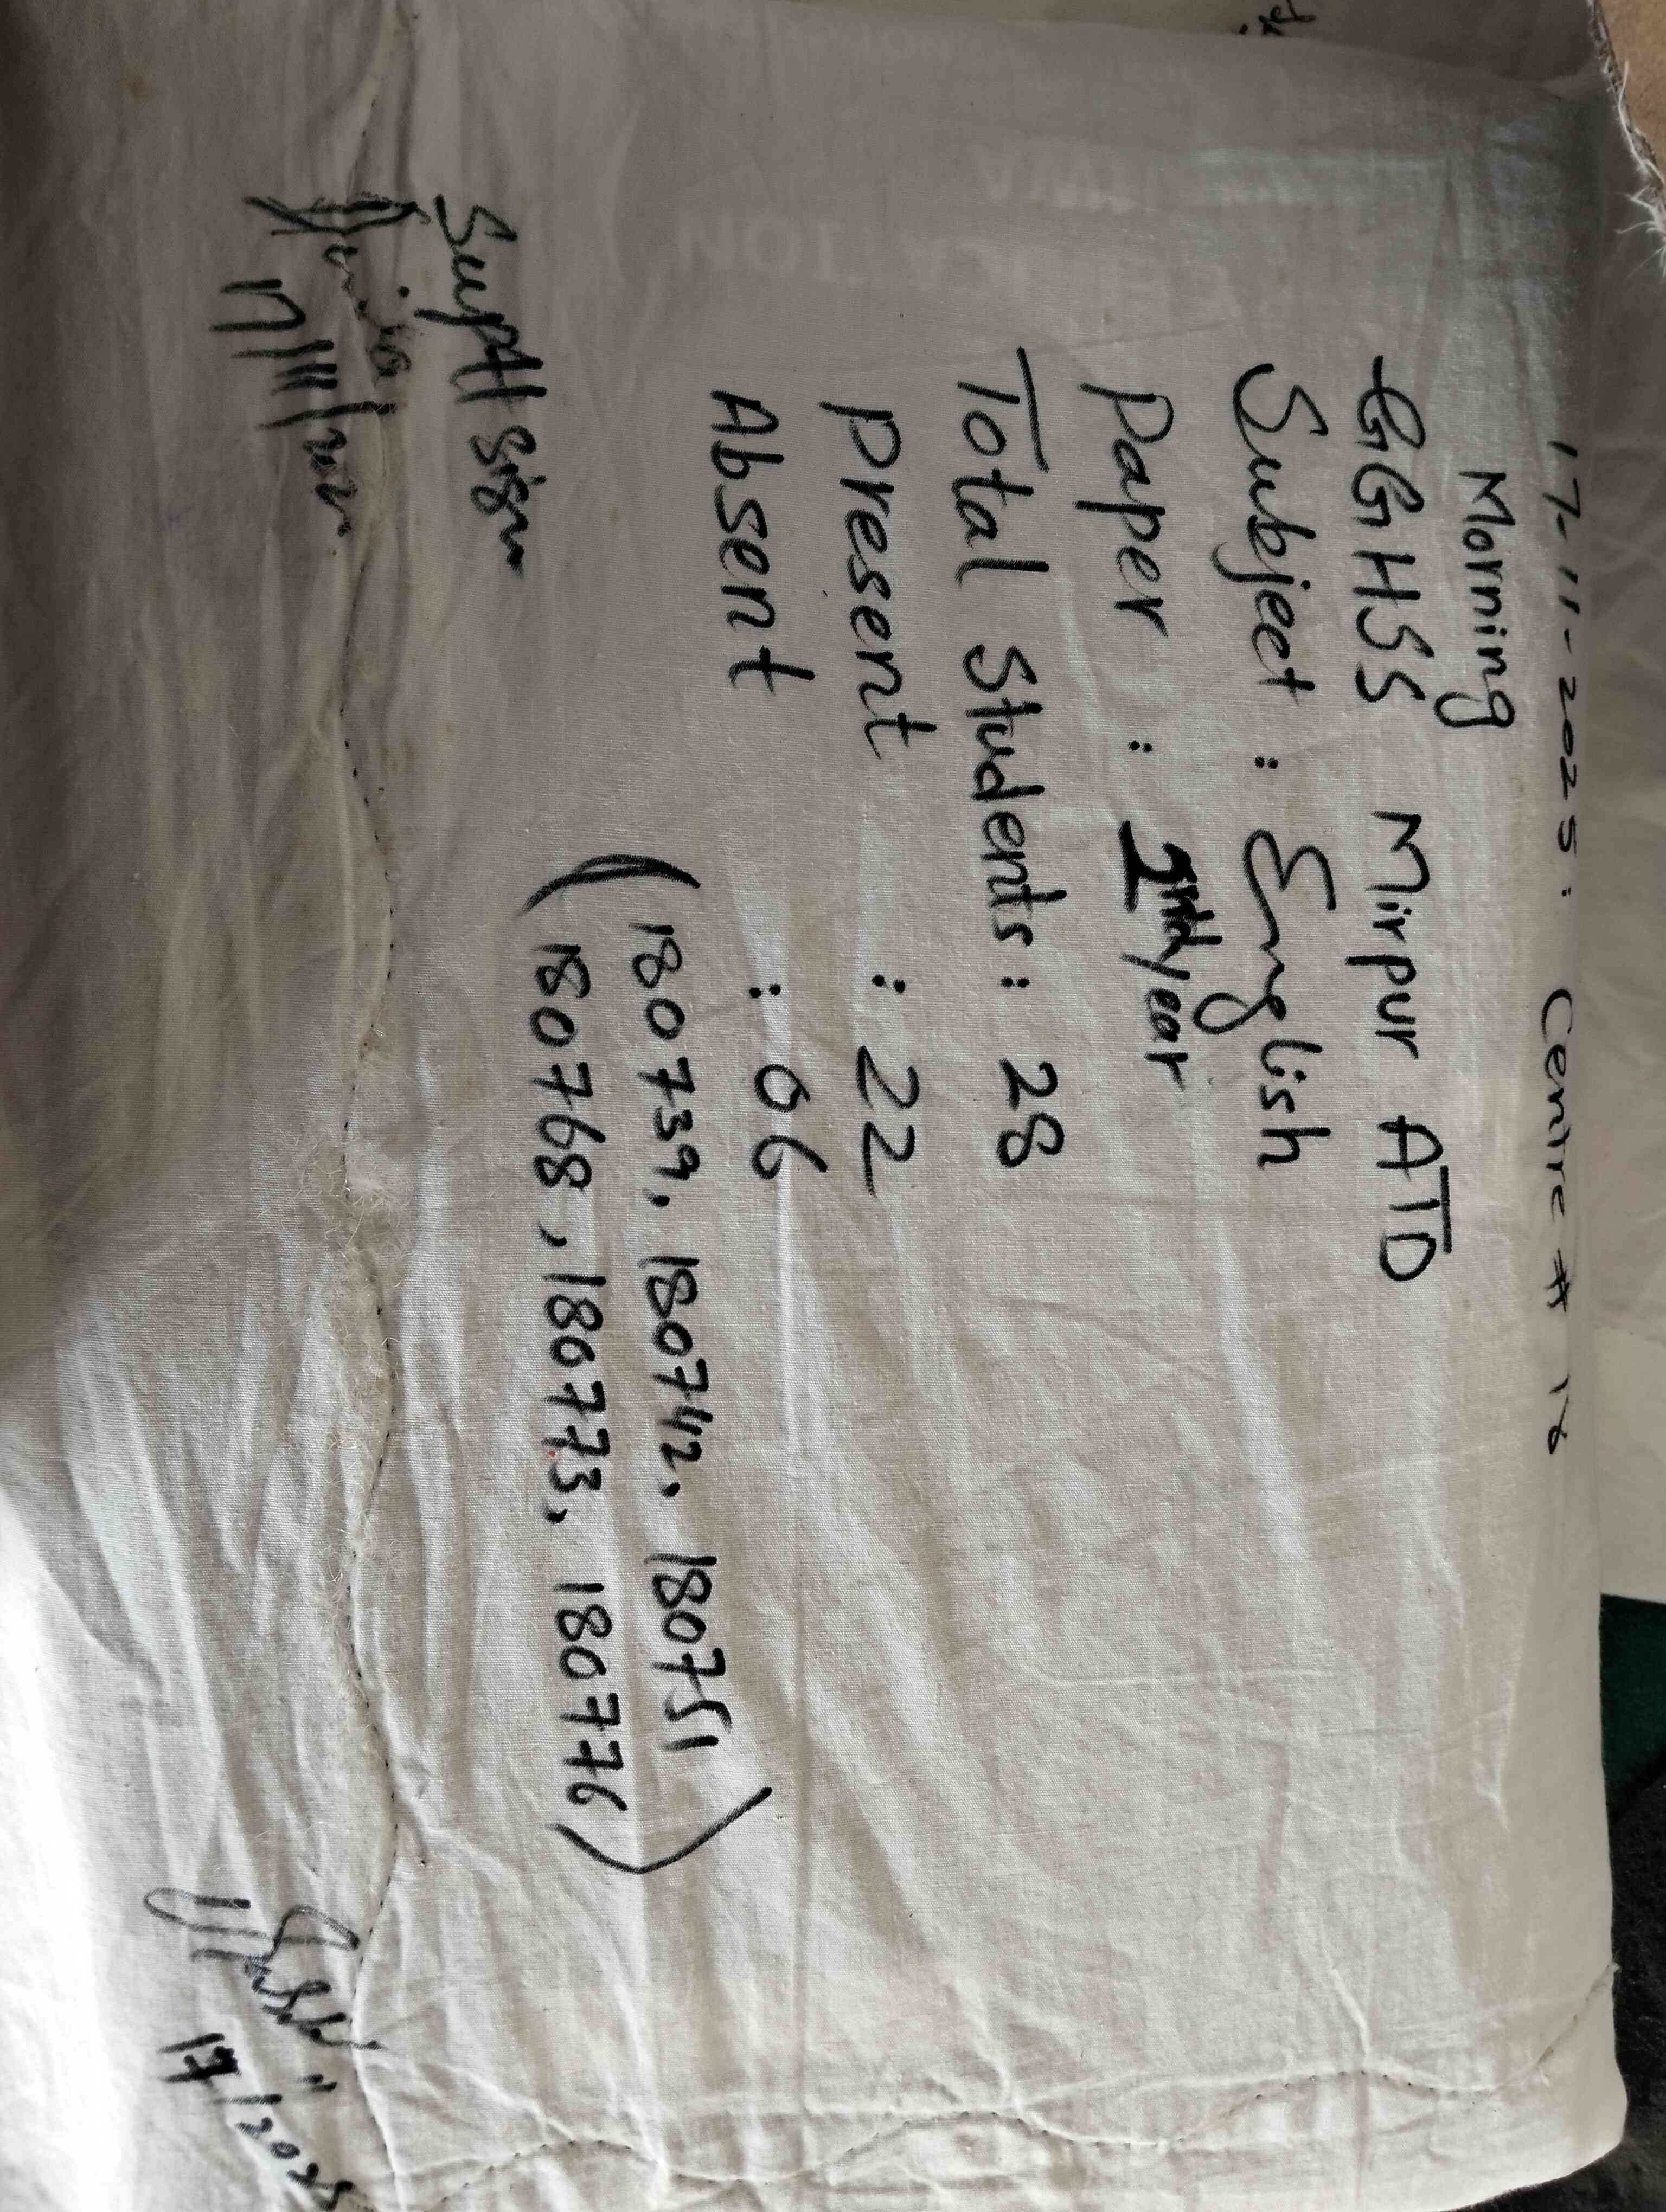 17-11-2025: Centre # 18
Morning
GGHSS Mirpur ATD
Subject : English
Paper : year
Total Students : 28
Present : 22
Absent : 06
(180739, 180742, 180751
180768, 180773, 180776)
Suptt Sign
17/11/2025
17/11/2025